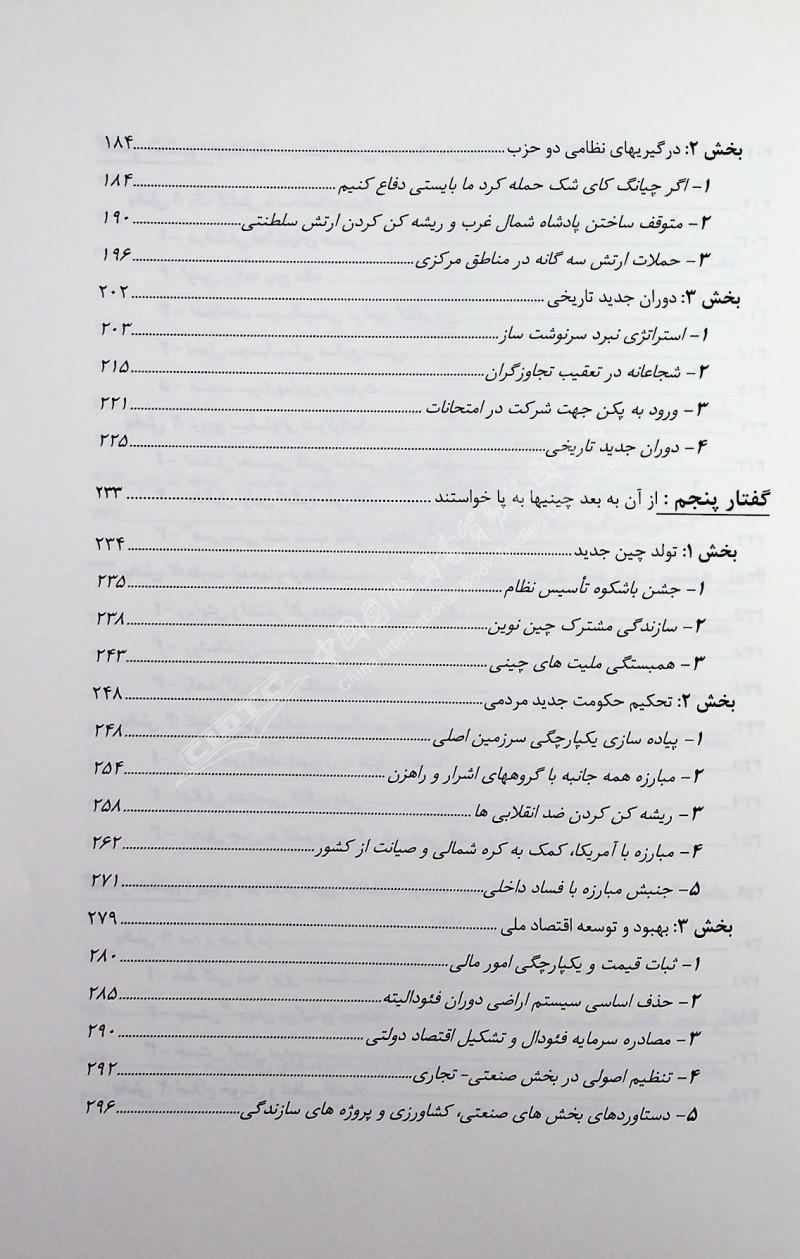 بخش ۲: درگیریهای نظامی دو حزب ۱۸۴
۱- اگر چیانگ کای شک حمله کرد ما بایستی دفاع کنیم ۱۸۴
۲- متوقف ساختن پادشاه شمال غرب و ریشه کن کردن ارتش سلطنتی ۱۹۰
۳- حملات ارتش سه گانه در مناطق مرکزی ۱۹۶
بخش ۳: دوران جدید تاریخی ۲۰۲
۱- استراتژی نبرد سرنوشت ساز ۲۰۳
۲- شجاعانه در تعقیب تجاوزگران ۲۱۵
۳- ورود به پکن جهت شرکت در امتحانات ۲۲۱
۴- دوران جدید تاریخی ۲۲۵
گفتار پنجم : از آن به بعد چینیها به پا خواستند ۲۳۳
بخش ۱: تولد چین جدید ۲۳۴
۱- جشن باشکوه تأسیس نظام ۲۳۵
۲- سازندگی مشترک چین نوین ۲۳۸
۳- همبستگی ملیت های چینی ۲۴۳
بخش ۲: تحکیم حکومت جدید مردمی ۲۴۸
۱- پیاده سازی یکپارچگی سرزمین اصلی ۲۴۸
۲- مبارزه همه جانبه با گروههای اشرار و راهزن ۲۵۴
۳- ریشه کن کردن ضد انقلابی ها ۲۵۸
۴- مبارزه با آمریکا، کمک به کره شمالی و صیانت از کشور ۲۶۲
۵- جنبش مبارزه با فساد داخلی ۲۷۱
بخش ۳: بهبود و توسعه اقتصاد ملی ۲۷۹
۱- ثبات قیمت و یکپارچگی امور مالی ۲۸۰
۲- حذف اساسی سیستم اراضی دوران فئودالیته ۲۸۵
۳- مصادره سرمایه فئودال و تشکیل اقتصاد دولتی ۲۹۰
۴- تنظیم اصولی در بخش صنعتی- تجاری ۲۹۲
۵- دستاوردهای بخش های صنعتی، کشاورزی و پروژه های سازندگی ۲۹۶